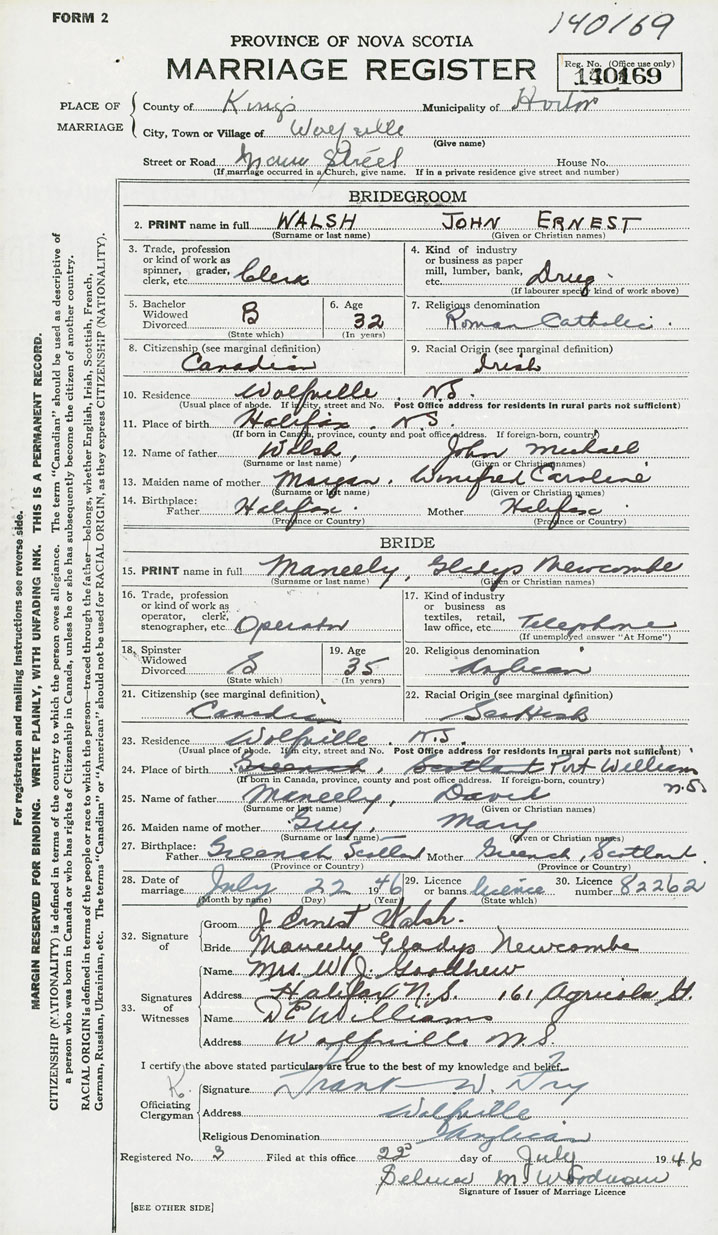 FORM 2
140169
PROVINCE OF NOVA SCOTIA
MARRIAGE REGISTER
Reg. No. (Office use only)
140169
PLACE OF MARRIAGE
County of Kings Municipality of Horton
City, Town or Village of Wolfville
(Give name)
Street or Road Main Street House No.
(If marriage occurred in a Church, give name. If in a private residence give street and number)
BRIDEGROOM
2. PRINT name in full WALSH JOHN ERNEST
(Surname or last name) (Given or Christian names)
3. Trade, profession or kind of work as spinner, grader, clerk, etc. Clerk
4. Kind of industry or business as paper mill, lumber, bank, etc. Drug
(If labourer specify kind of work above)
5. Bachelor Widowed Divorced B
(State which)
6. Age 32
(In years)
7. Religious denomination
Roman Catholic.
8. Citizenship (see marginal definition)
Canadian
9. Racial Origin (see marginal definition)
Irish
10. Residence Wolfville, N.S.
(Usual place of abode. If in city, street and No. Post Office address for residents in rural parts not sufficient)
11. Place of birth Halifax, N.S.
(If born in Canada, province, county and post office address. If foreign-born, country)
12. Name of father Walsh, John Michael
(Surname or last name) (Given or Christian names)
13. Maiden name of mother Morgan, Winifred Caroline
(Surname or last name) (Given or Christian names)
14. Birthplace: Father Halifax. Mother Halifax
(Province or Country) (Province or Country)
BRIDE
15. PRINT name in full Maneely, Gladys Newcombe
(Surname or last name) (Given or Christian names)
16. Trade, profession or kind of work as operator, clerk, stenographer, etc. Operator
17. Kind of industry or business as textiles, retail, law office, etc. Telephone
(If unemployed answer "At Home")
18. Spinster Widowed Divorced
(State which)
19. Age 35
(In years)
20. Religious denomination
Anglican
21. Citizenship (see marginal definition)
Canadian
22. Racial Origin (see marginal definition)
Scottish
23. Residence Wolfville, N.S.
(Usual place of abode. If in city, street and No. Post Office address for residents in rural parts not sufficient)
24. Place of birth Scotland Port Williams
N.S.
(If born in Canada, province, county and post office address. If foreign-born, country)
25. Name of father Maneely, David
(Surname or last name) (Given or Christian names)
26. Maiden name of mother Guy, Mary
(Surname or last name) (Given or Christian names)
27. Birthplace: Father Scotland Mother Scotland.
(Province or Country) (Province or Country)
28. Date of marriage July 22 1946
(Month by name) (Day) (Year)
29. Licence or banns licence
(State which)
30. Licence number 82262
32. Signature of
Groom J. Ernest Walsh.
Bride Maneely Gladys Newcombe
33. Signatures of Witnesses
Name Mrs. W. J. Goodhew
Address Halifax N.S. 161 Agricola St.
Name Williams
Address Wolfville N.S.
I certify the above stated particulars are true to the best of my knowledge and belief.
Officiating Clergyman
Signature Frank W.
Address Wolfville
Religious Denomination Anglican
Registered No. 3 Filed at this office 22 day of July 1946
M. Woodman
Signature of Issuer of Marriage Licence
[SEE OTHER SIDE]
For registration and mailing instructions see reverse side.
MARGIN RESERVED FOR BINDING. WRITE PLAINLY, WITH UNFADING INK. THIS IS A PERMANENT RECORD.
CITIZENSHIP (NATIONALITY) is defined in terms of the country to which the person owes allegiance. The term "Canadian" should be used as descriptive of
a person who was born in Canada or who has rights of Citizenship in Canada, unless he or she has subsequently become the citizen of another country.
RACIAL ORIGIN is defined in terms of the people or race to which the person—traced through the father—belongs, whether English, Irish, Scottish, French,
German, Russian, Ukrainian, etc. The terms "Canadian" or "American" should not be used for RACIAL ORIGIN, as they express CITIZENSHIP (NATIONALITY).